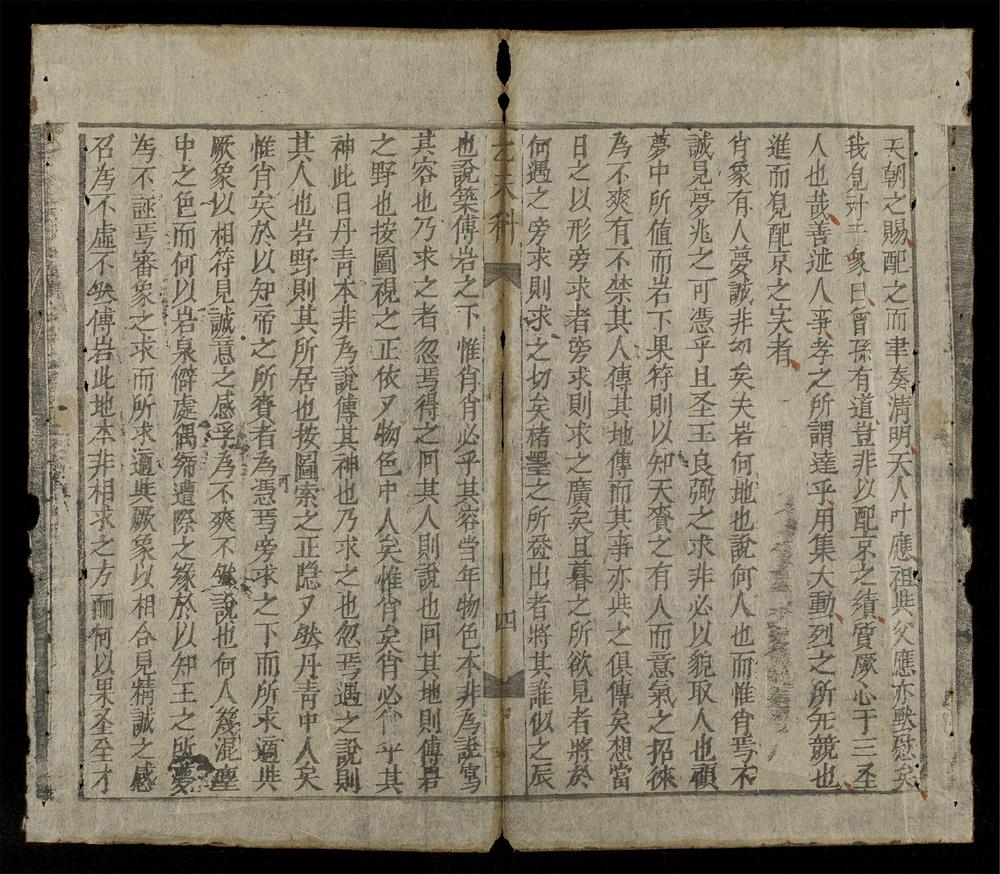 天朝之賜配之而聿奏清明天人叶應祖與父應亦歟慰矣
我皃對二象曰曾孫有道豈非以配京之績質厥心于三圣
人也㢤善述人亊孝之所謂達乎用集大勳烈之所无競也
進而皃配京之实者
肖象有人夢誠非幻矣夫岩何地也說何人也而惟肖焉不
誠見夢兆之可憑乎且圣王良弼之求非必以貌取人也頋
夢中所值而岩下果符則以知天賚之有人而意氣之招徠
為不爽有不禁其人傳其地傳而其亊亦與之俱傳矣想當
日之以形旁求者旁求則求之廣矣且暮之所欲見者將於
何遇之旁求則求之切矣楮墨之所㳟出者將其誰似之辰
乙未科 四
也說築傅岩之下惟肖肖必乎其容当年物色本非為說寫
其容也乃求之者忽焉得之问其人則說也问其地則傅岩
之野也按圖視之正依又物色中人矣惟肖矣肖必乎其
神此日丹青本非為說傳其神也乃求之也忽焉遇之說則
其人也岩野則其所居也按圖索之正隐又㸃丹青中人矣
惟肖矣於以知帝之所賚者為可憑焉旁求之下而所求適與
厥象以相符見誠意之感孚為不爽不然說也何人㡬混塵
中之色而何以岩泉僻處偶締遭際之緣於以知王之所夢
為不誣焉審象之求而所求適與厥象以相合見精誠之感
召為不虛不然傅岩此地本非相求之方而何以果圣至才